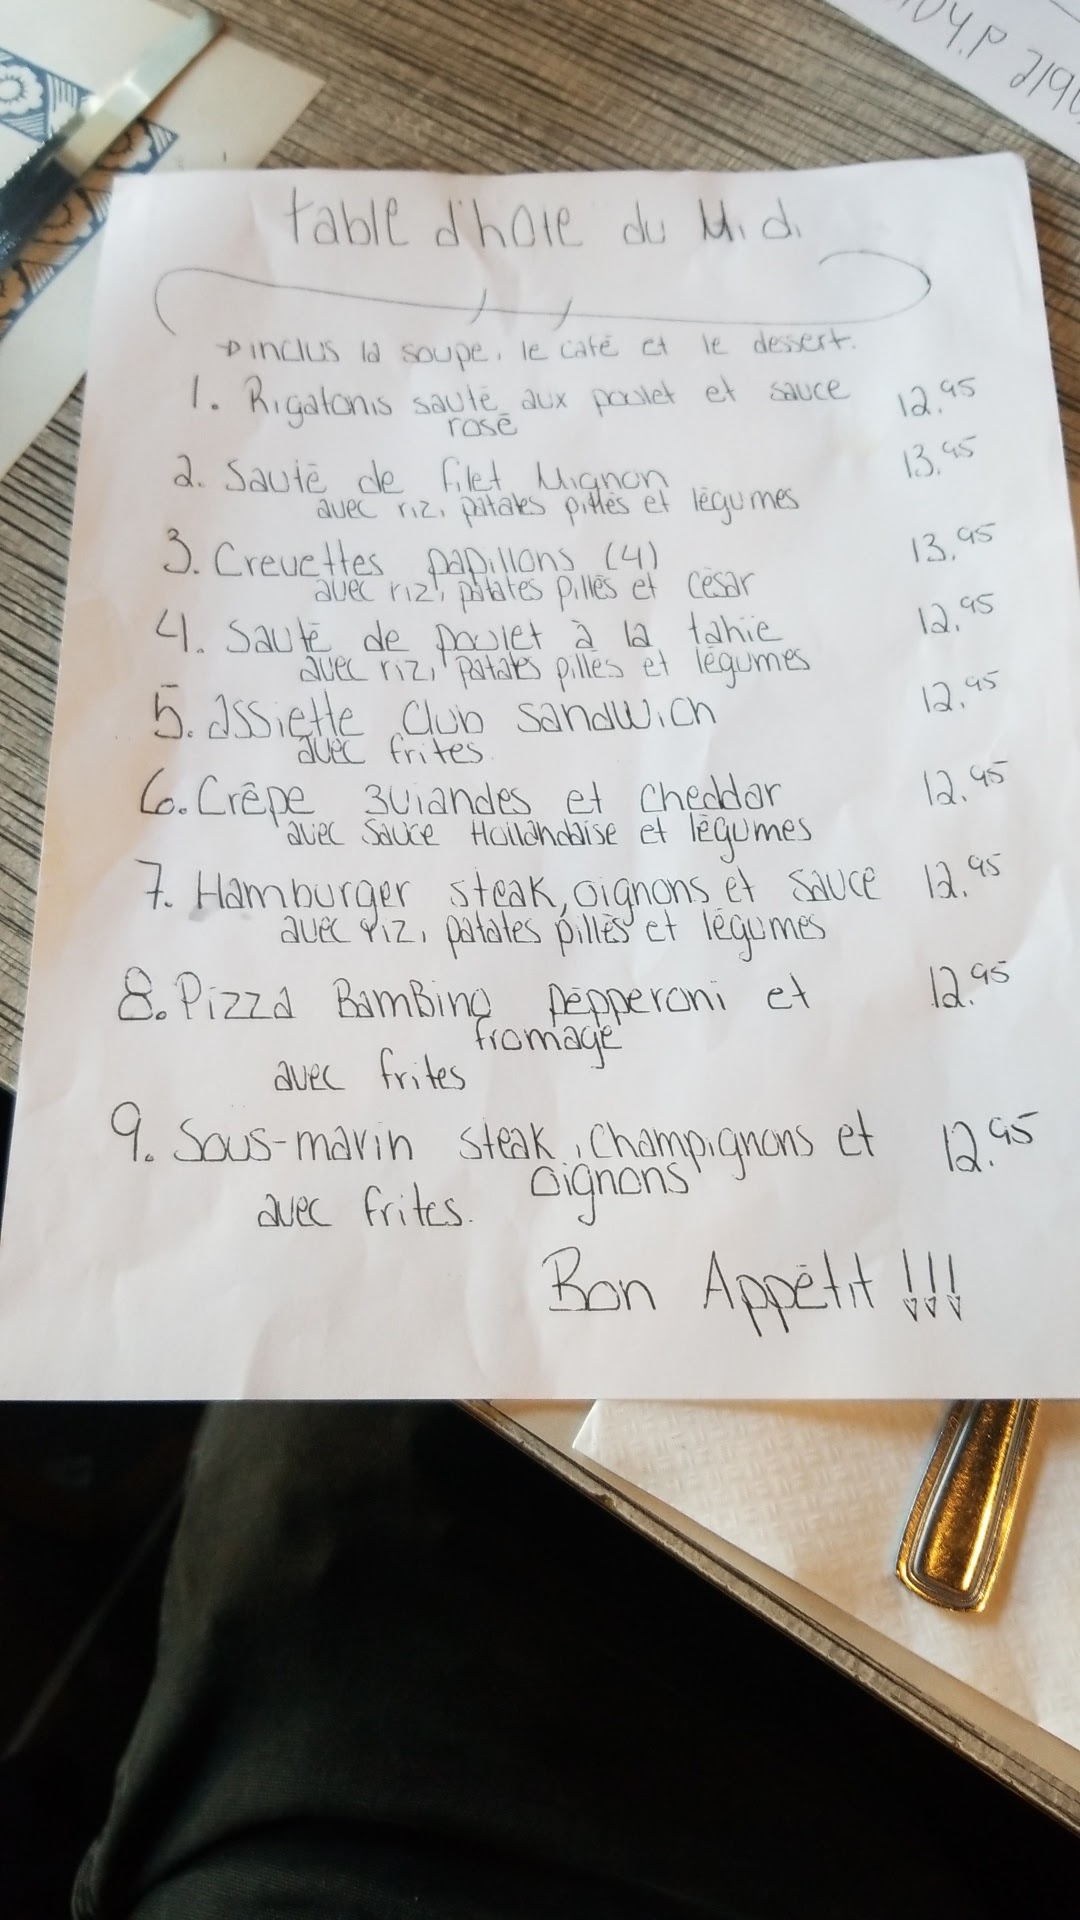 table d'hote du Midi
inclus la soupe, le café et le dessert.
1. Rigatonis sauté aux poulet et sauce 12.95
rosé
2. Sauté de filet Mignon 13.95
avec riz, patates pillés et légumes
3. Crevettes papillons (4) 13.95
avec riz, patates pillés et César
4. Sauté de poulet à la tahie 12.95
avec riz, patates pillés et légumes
5. assiette Club sandwich 12.95
avec frites.
6. Crêpe 3viandes et cheddar 12.95
avec sauce Hollandaise et légumes
7. Hamburger steak, oignons et sauce 12.95
avec riz, patates pillés et légumes
8. Pizza BamBino pepperoni et 12.95
fromage
avec frites
9. Sous-marin steak, champignons et 12.95
oignons
avec frites.
Bon Appétit !!!